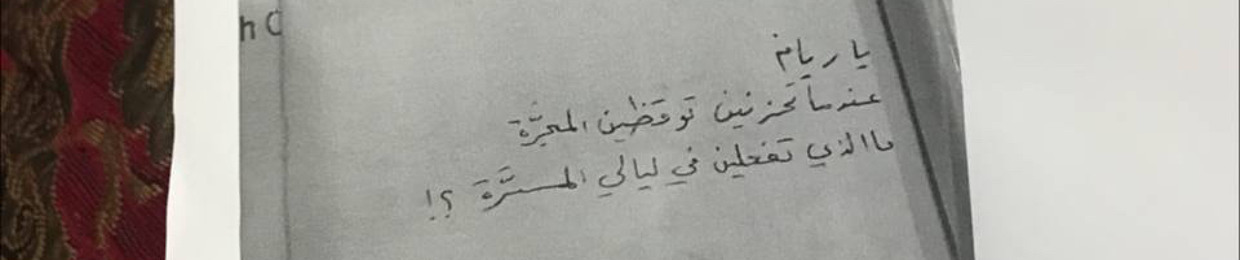 h C
يا ريام
عندما تحزنين توقظين المجرَّة
ما الذي تفعلين في ليالي المسرَّة ؟!